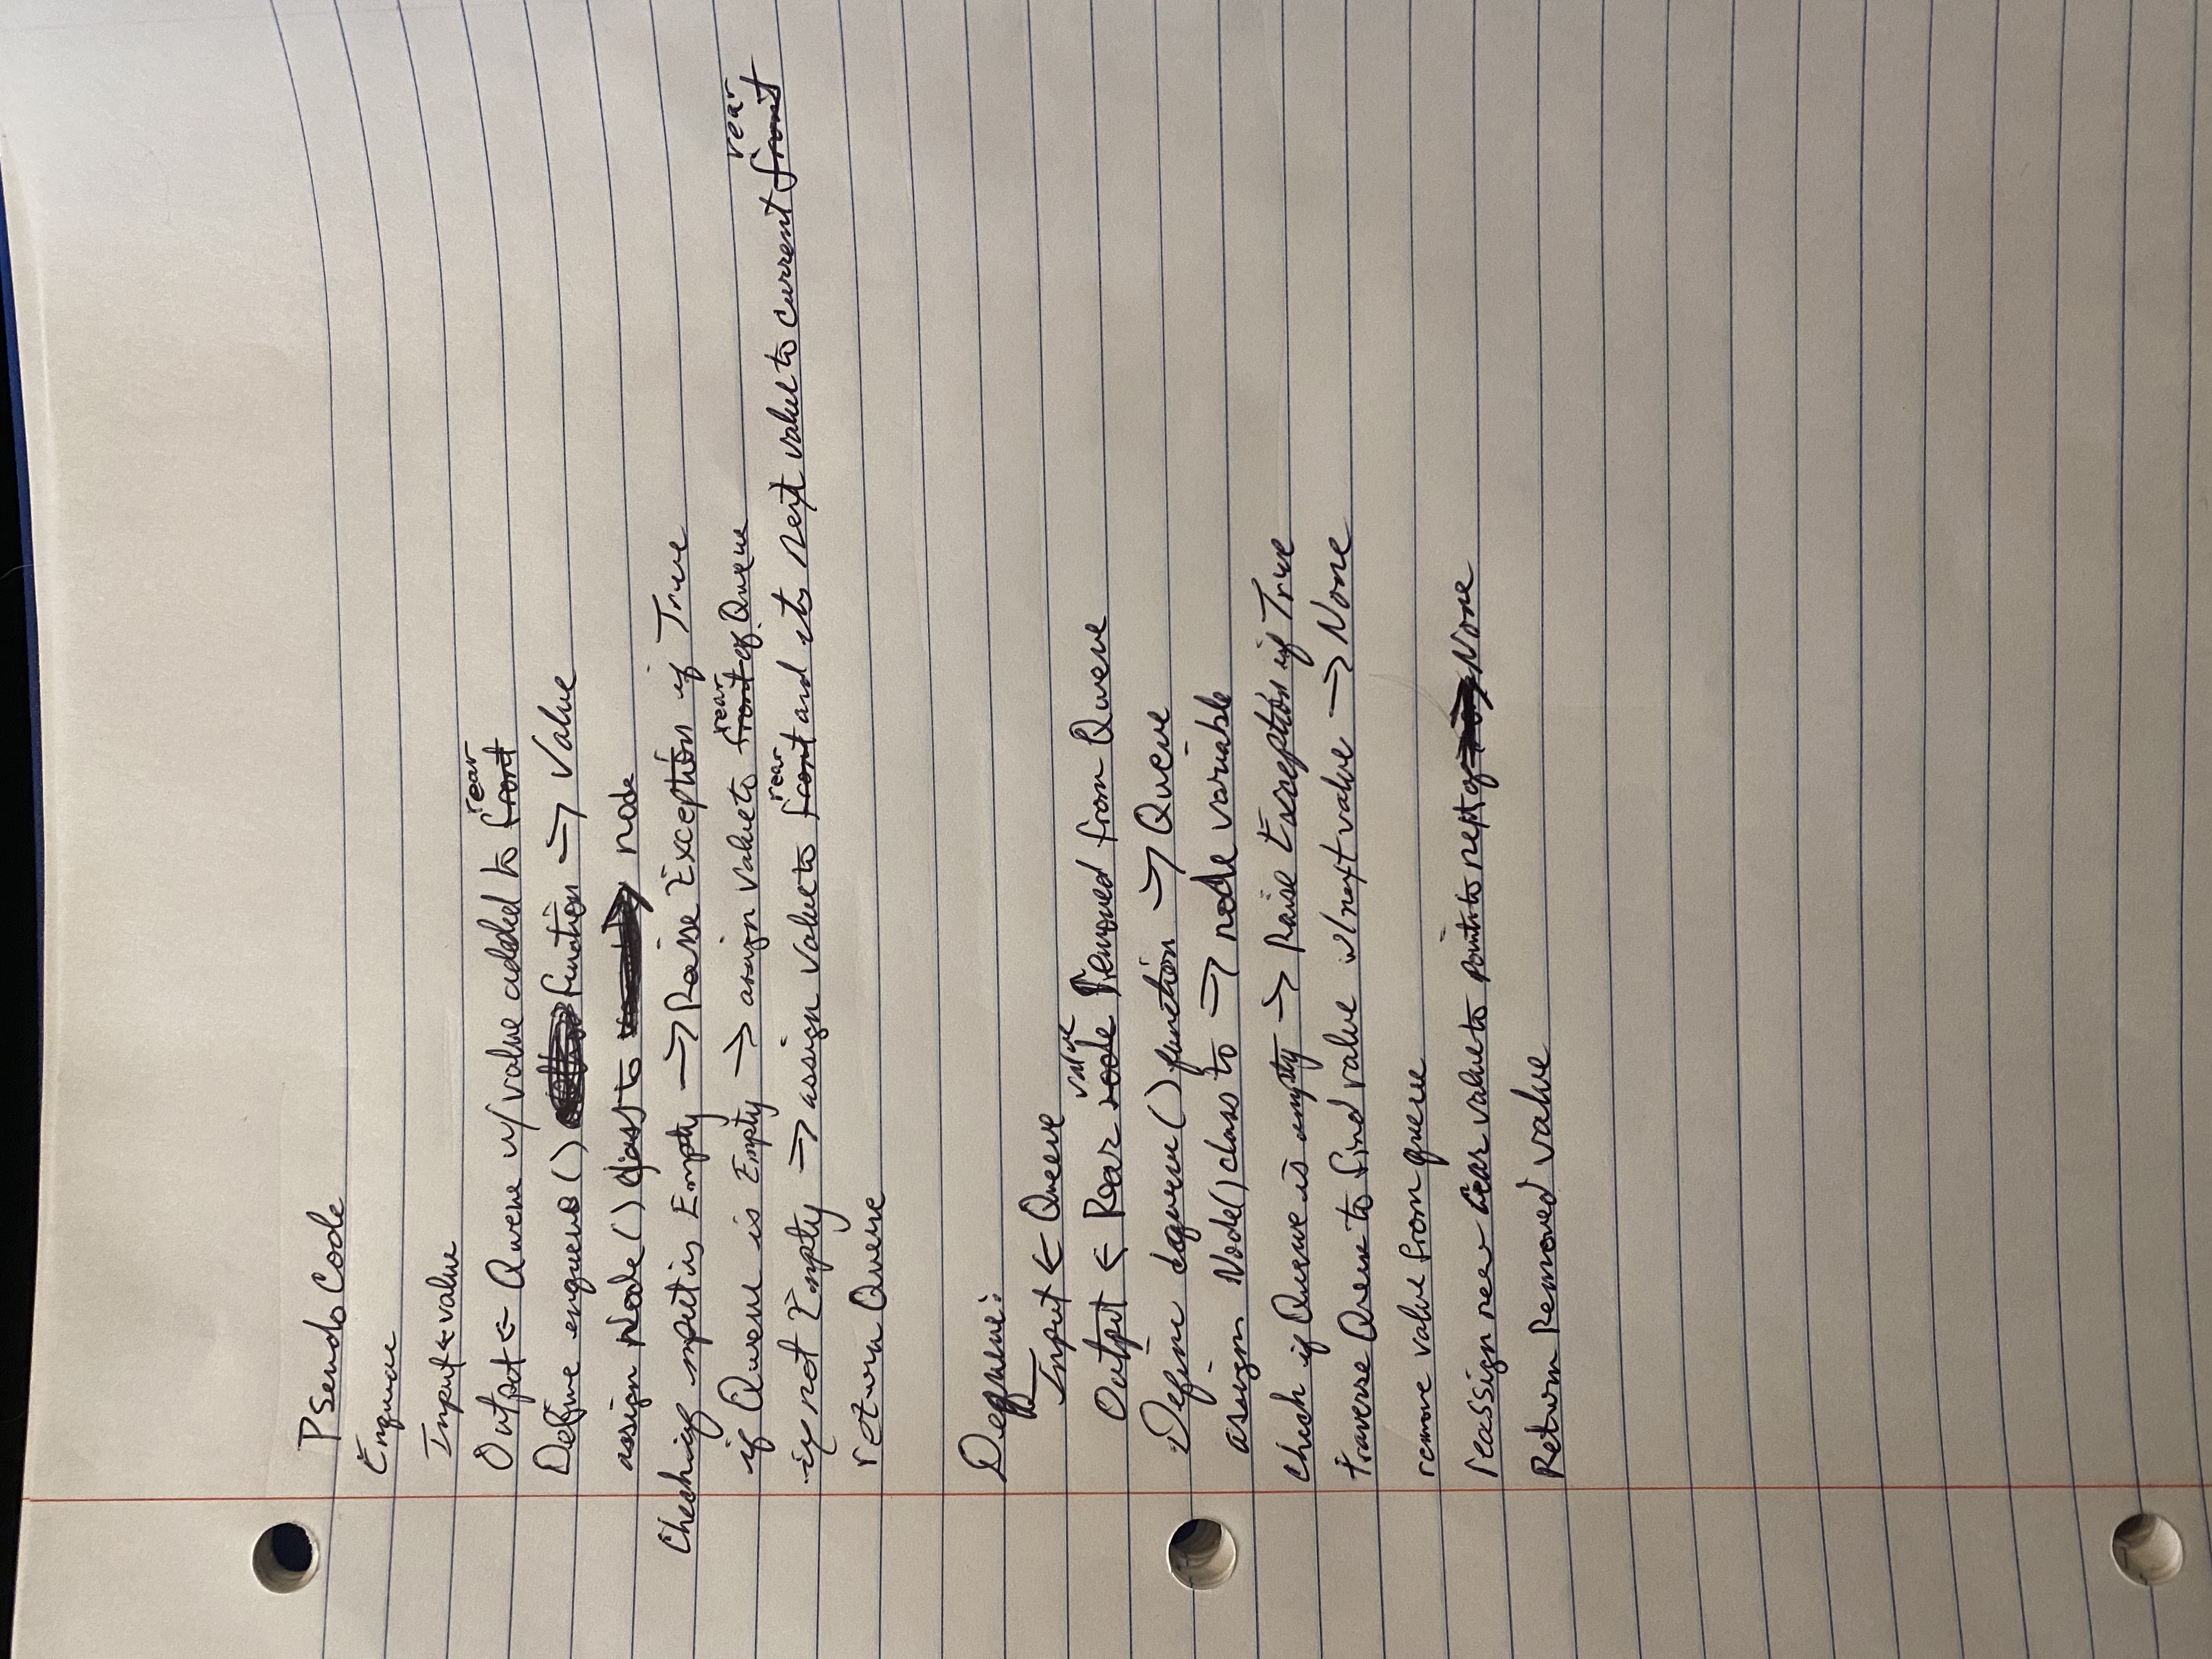 Pseudo Code
Enqueue
Input ← value
Output ← Queue w/ value added to front rear
Define enqueue() function → Value
assign Node() class to node
Check if input is Empty → Raise Exception if True
if Queue is Empty → assign value to front rear of Queue
if not Empty → assign value to front rear and its next value to current front rear
return Queue
Dequeue:
Input ← Queue
Output ← Rear node value removed from Queue
Define dequeue() function → Queue
assign Node() class to → node variable
Check if Queue is empty → Raise Exception if True
traverse Queue to find value w/ next value → None
remove value from queue
reassign new rear value to point to next of None
Return Removed value